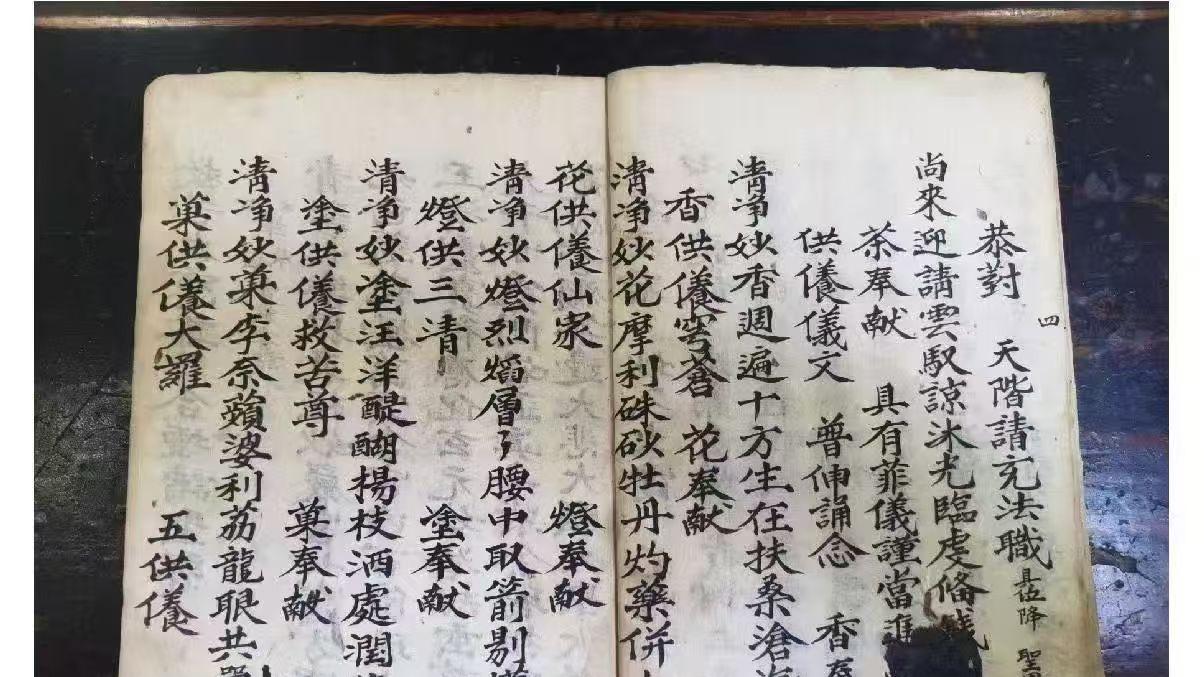 恭對 天階請充法職 具位降 聖
四
尚來迎請雲馭諒沐光臨虔俻
茶奉献 具有菲儀謹當進
供養儀文 普伸誦念 香
清净妙香週遍十方生在扶桑滄海
香供養穹蒼 花奉献
清净妙花摩利硃砂牡丹灼藥併
花供養仙家 燈奉献
清净妙燈烈焰層々腰中取箭剔
燈供三清 塗奉献
清净妙塗汪洋醍醐楊枝洒處潤
塗供養救苦尊 菓奉献
清净妙菓李奈蘋婆利荔龍眼共
菓供養大羅 五供養